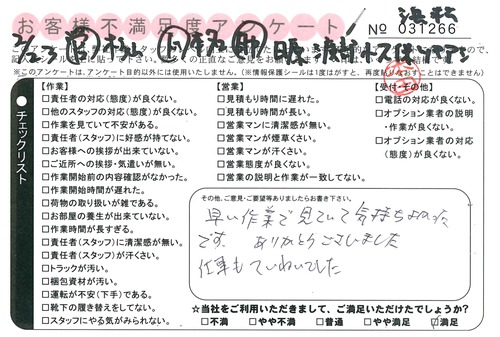 お客様不満足度アンケート
浜松
No 031266
※このアンケートは、アンケート目的以外には使用いたしません。(※情報保護シールは1度はがすと、再度貼りなおすことはできません)
チェックリスト
【作業】
□責任者の対応(態度)が良くない。
□他のスタッフの対応(態度)が良くない。
□作業を見ていて不安がある。
□責任者(スタッフ)に好感が持てない。
□お客様への挨拶が出来ていない。
□ご近所への挨拶・気遣いが無い。
□作業開始前の内容確認がなかった。
□作業開始時間が遅れた。
□荷物の取り扱いが雑である。
□お部屋の養生が出来ていない。
□作業時間が長すぎる。
□責任者(スタッフ)に清潔感が無い。
□責任者(スタッフ)が汗くさい。
□トラックが汚い。
□梱包資材が汚い。
□運転が不安(下手)である。
□靴下の履き替えをしてない。
□スタッフにやる気がみられない。
【営業】
□見積もり時間に遅れた。
□見積もり時間が長い。
□営業マンに清潔感が無い。
□営業マンが煙草くさい。
□営業マンが汗くさい。
□営業態度が良くない。
□営業の説明と作業が一致してない。
【受付・その他】
□電話の対応が良くない。
□オプション業者の説明・作業が良くない。
□オプション業者の対応(態度)が良くない。
その他、ご意見・ご要望等ありましたらお書き下さい。
早い作業で見ていて気持ちよかった
です。ありがとうございました
仕事もていねいでした
☆当社をご利用いただきまして、ご満足いただけたでしょうか?
□不満 □やや不満 □普通 □やや満足 □満足